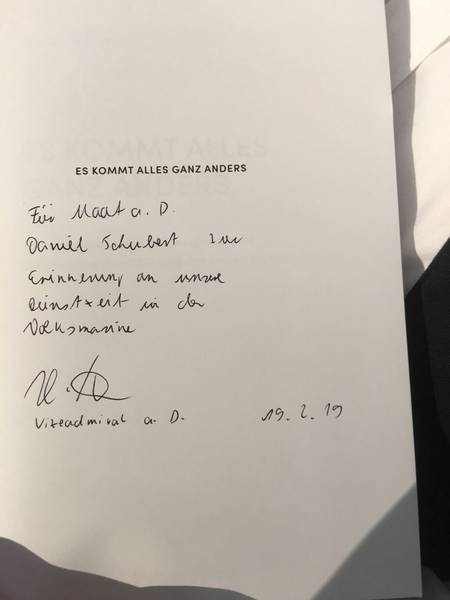 ES KOMMT ALLES GANZ ANDERS
Für Maat a. D.
Daniel Schubert zur
Erinnerung an unsere
Dienstzeit in der
Volksmarine
Vizeadmiral a. D. 19. 2. 19